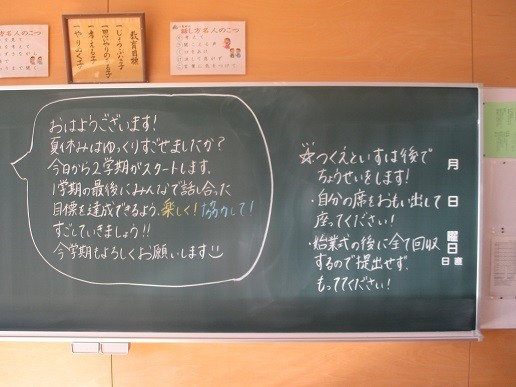 話し方名人のこつ
教育目標
一 じょうぶな子
一 思いやりのある子
一 考える子
一 やりぬく子
おはようございます!
夏休みはゆっくりすごせましたか?
今日から2学期がスタートします。
1学期の最後にみんなで話し合った
目標を達成できるよう、楽しく!協力して!
すごしていきましょう!!
今学期もよろしくお願いします
☆つくえといすは後で
ちょうせいをします!
・自分の席をおもい出して
座ってください!
・始業式の後に全て回収
するので提出せず、
もっててください!
月
日
曜日
日直